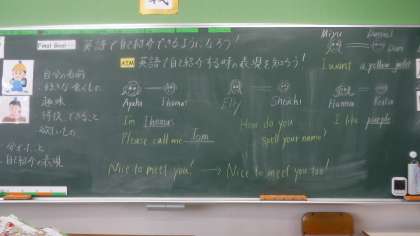 Final Goal
英語で自己紹介できるようになろう!
AIM 英語で自己紹介する時の表現を知ろう!
自分の名前
好きな食べもの
趣味
特技、できること
欲しいもの
自己紹介の表現
Ayaka Thomas
I'm Thomas
Please call me Tom
Nice to meet you! → Nice to meet you too!
Elly Shoichi
How do you
spell your name?
Miyu Daniel
Dan
I want a yellow guitar
Hanna
I like purple